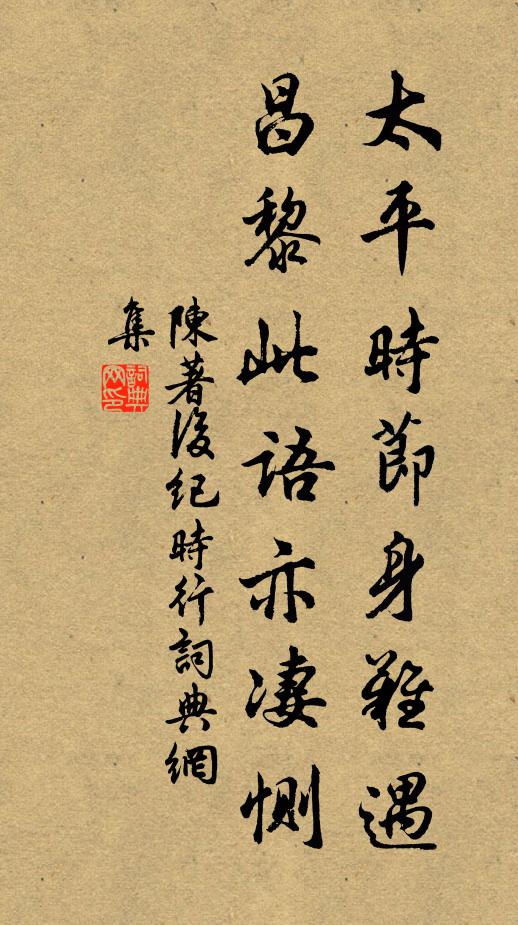 太平時節身難遇
昌黎此語亦凄惻
陳著後纪時行詞典網
集
詞典網印